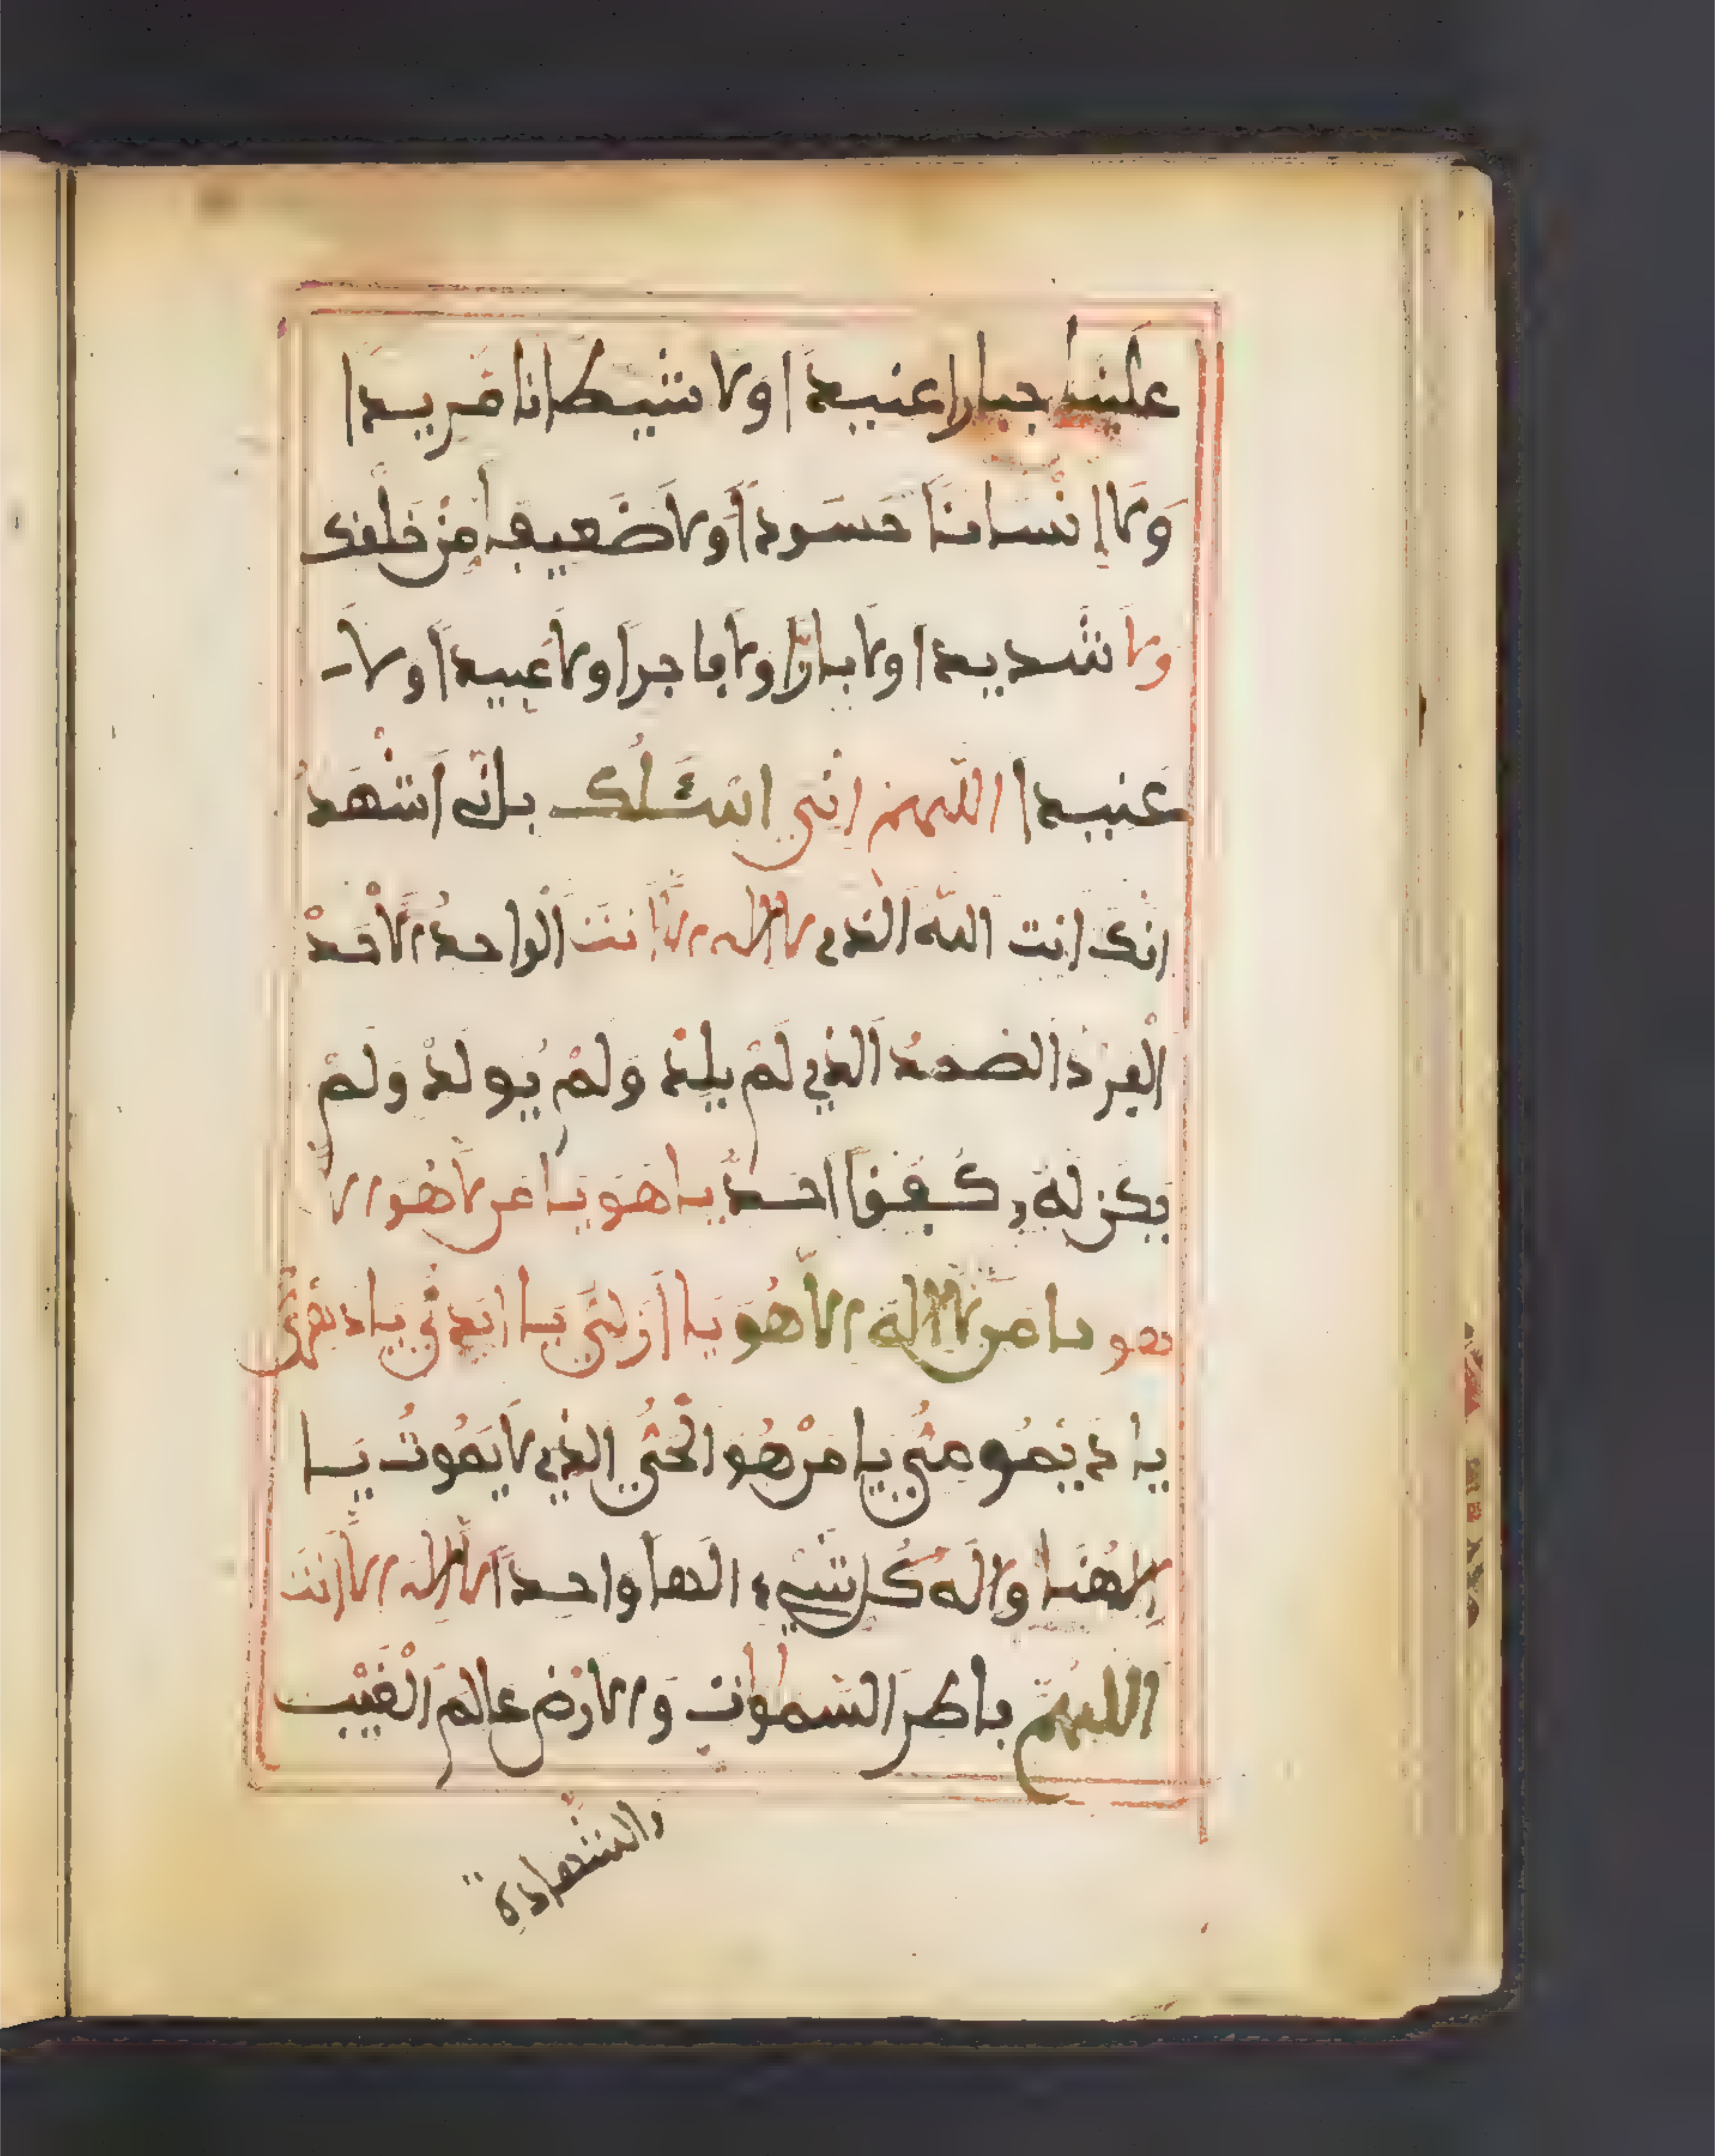 علينا جبارا عنيدا ولا شيطانا مريدا
ولا إنسانا حسودا ولا ضعيفا من خلفك
ولا شديدا ولا بارا ولا فاجرا ولا عبيدا ولا
عنيدا اللهم اني اسئلك بانى اشهد
انك انت الله الذى لا اله الا انت الواحد الاحد
الفرد الصمد الذي لم يلد ولم يولد ولم
يكن له كفؤا احد يا هو يا من لا هو الا
هو يا من لا اله الا هو يا ازلي يا ابدي يا دهري
يا ديمومي يا من هو الحي الذي لا يموت يا
الهنا واله كل شيء الها واحدا لا اله الا انت
اللهم فاطر السموات والارض عالم الغيب
والشهادة